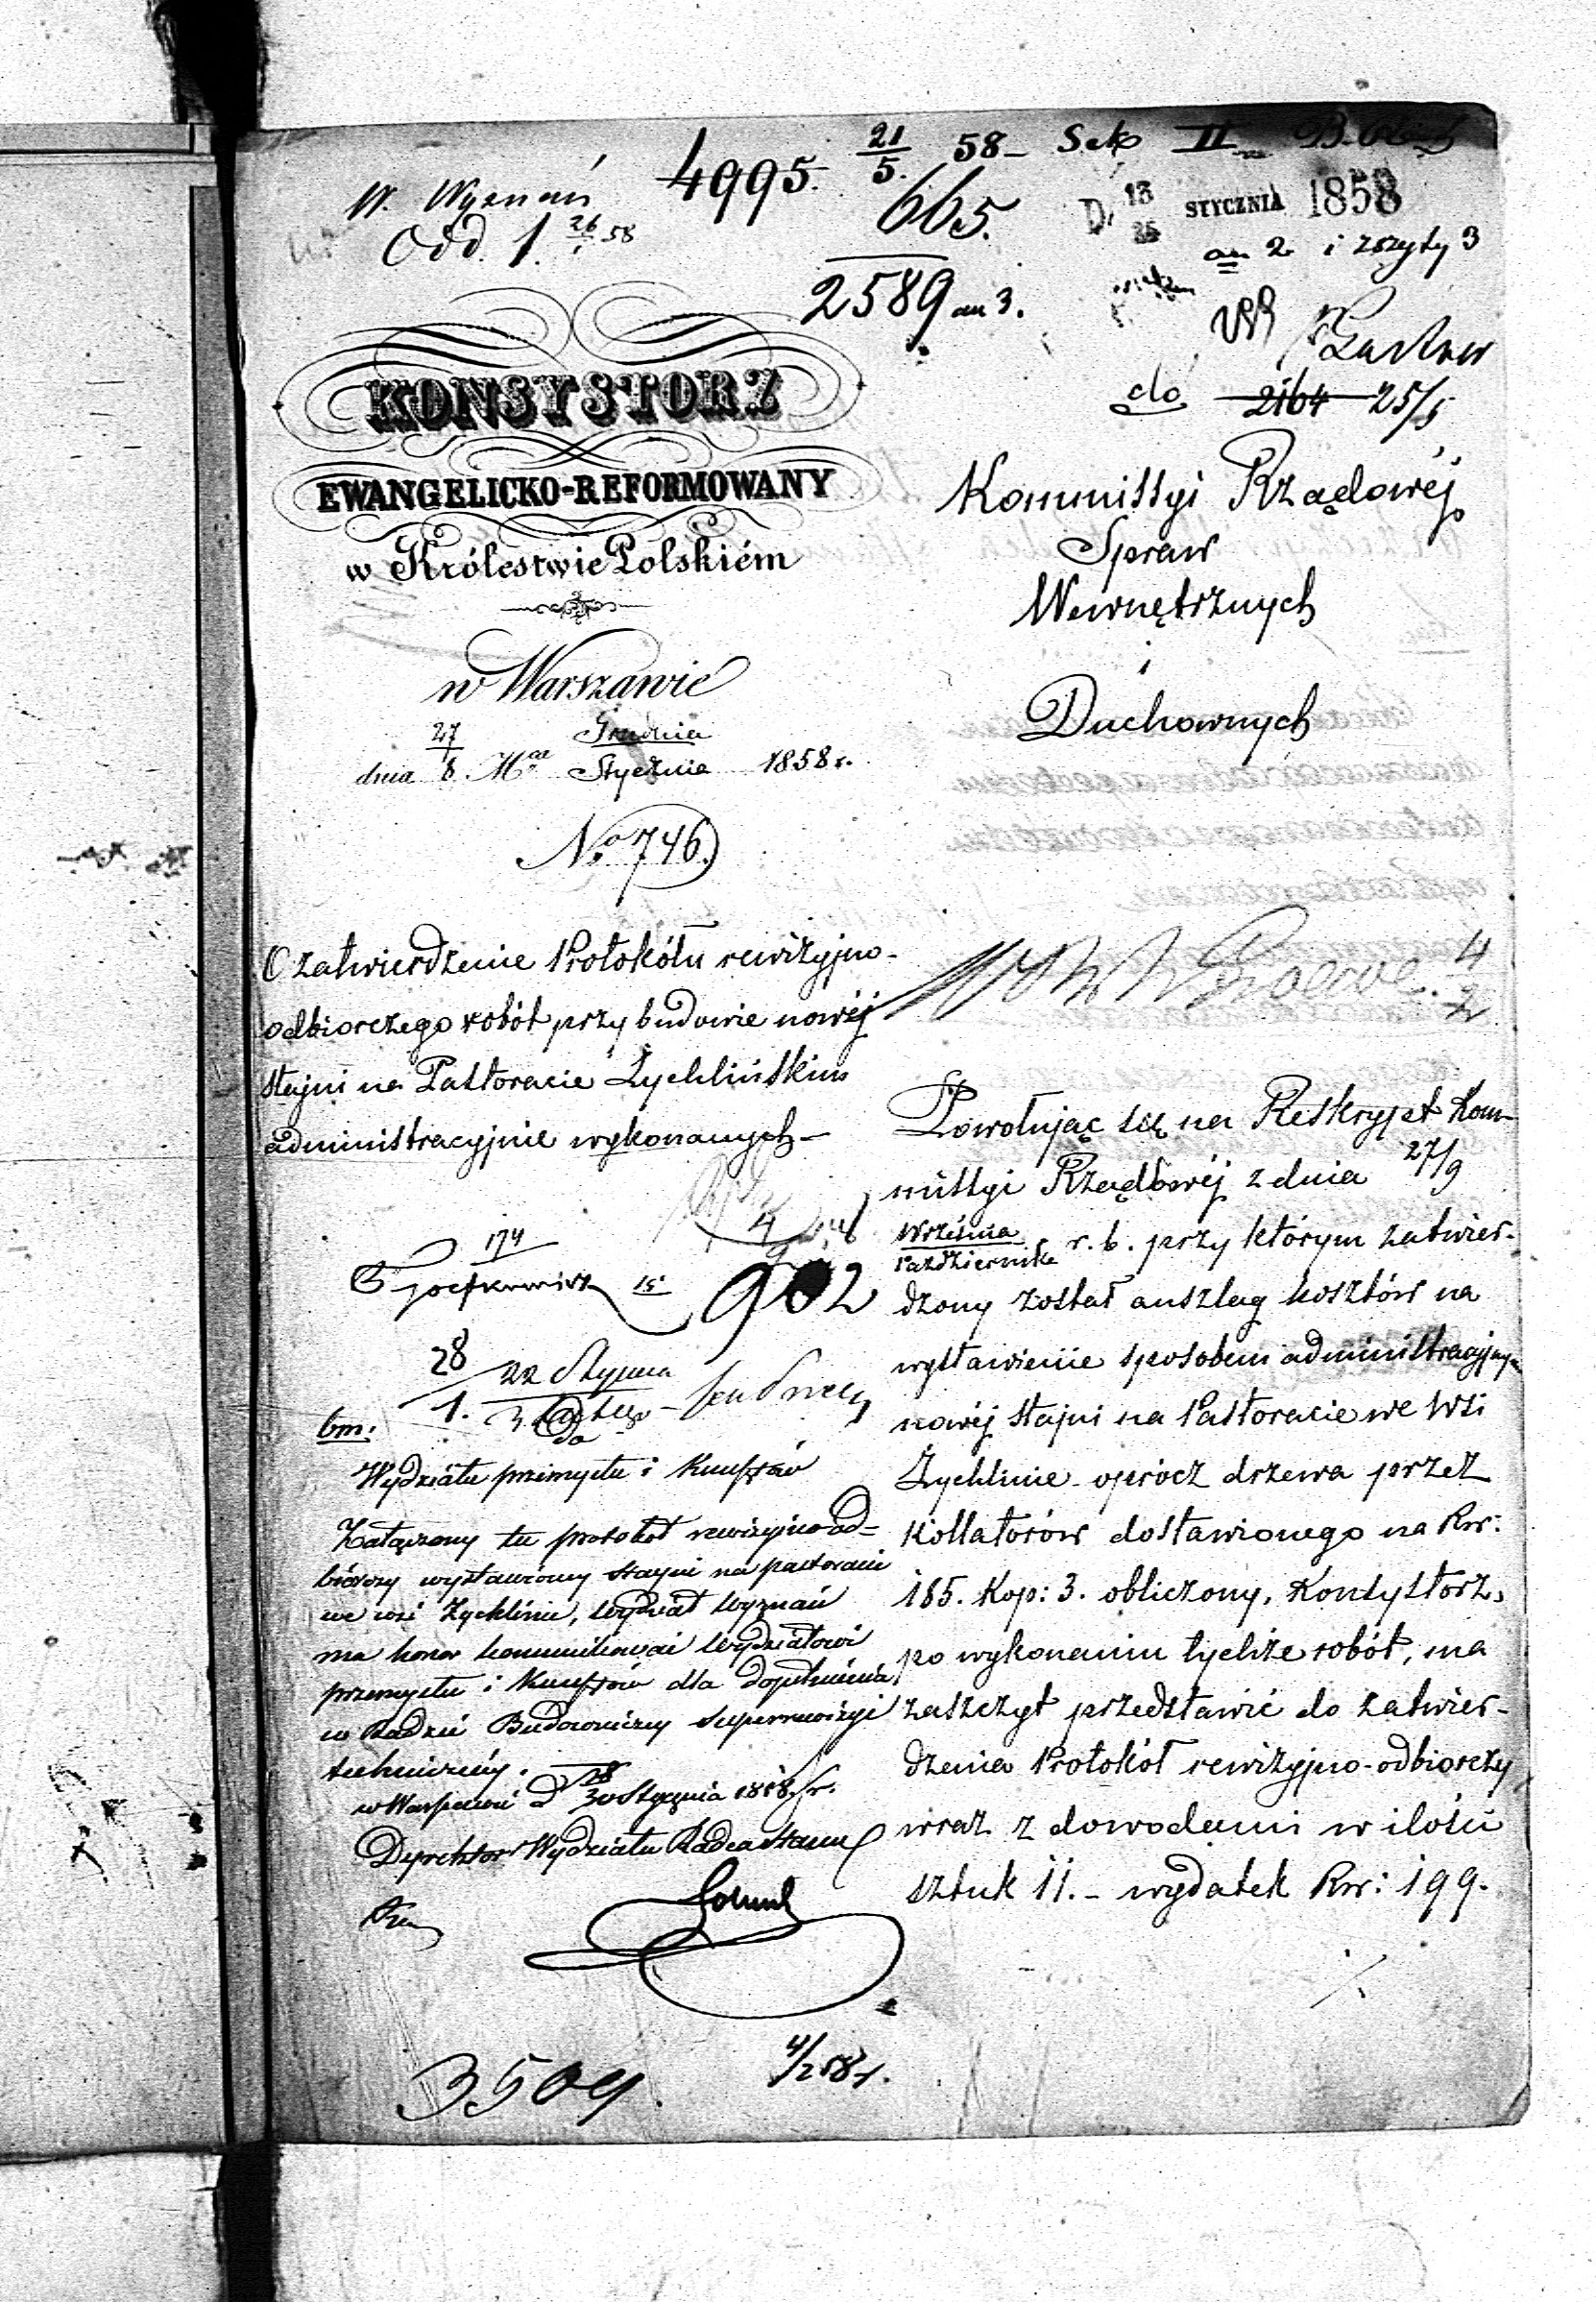 4995. 21/5. 58 - Sek II
W. Wyznań
Odd. 1. 26/1 58
665.
D. 13/25 STYCZNIA 1858
an 2 i zszyty 3
2589 an 3.
do 2164 25/5
KONSYSTORZ
EWANGELICKO-REFORMOWANY
w Królestwie Polskiém
w Warszawie
dnia 27/8. Mca Grudnia/Stycznia 1858 r.
No 746.
O zatwierdzenie Protokółu rewizyjno-
odbiorczego robót przy budowie nowéj
stajni na Pastoracie Żychlińskim
administracyjnie wykonanych -
174
902
28/1.
bm.
do
Wydziału przemysłu i Kunsztów
Załączony tu protokół rewizyjno od=
biorczy wystawionéj stajni na pastoracie
we wsi Żychlinie, Wydział Wyznań
ma honor kommunikować Wydziałowi
przemysłu i Kunsztów dla dopełnienia
w Radzie Budowniczéj superrewizyi
technicznéj.
w Warszawie d 18/30 Stycznia 1858 r.
Dyrektor Wydziału Radca Stanu
3509.
4/2 58 r.
Kommissyi Rządowéj
Spraw
Wewnętrznych
i
Duchownych
4/2
Powołując się na Reskrypt Kom-
missyi Rządowéj z dnia 27/9
Września/Października r. b. przy którym zatwier-
dzony został anszlag kosztów na
wystawienie sposobem administracyjnym
nowéj stajni na Pastoracie we Wsi
Żychlinie oprócz drzewa przez
Kollatorów dostawionego na Rsr:
185. Kop: 3. obliczony, Konsystorz,
po wykonaniu tychże robót, ma
zaszczyt przedstawić do zatwier-
dzenia Protokół rewizyjno-odbiorczy
wraz z dowodami w ilości
sztuk 11. - wydatek Rsr: 199.